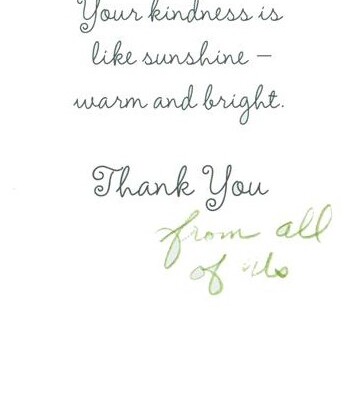 Your kindness is
like sunshine –
warm and bright.
Thank You
from all
of us